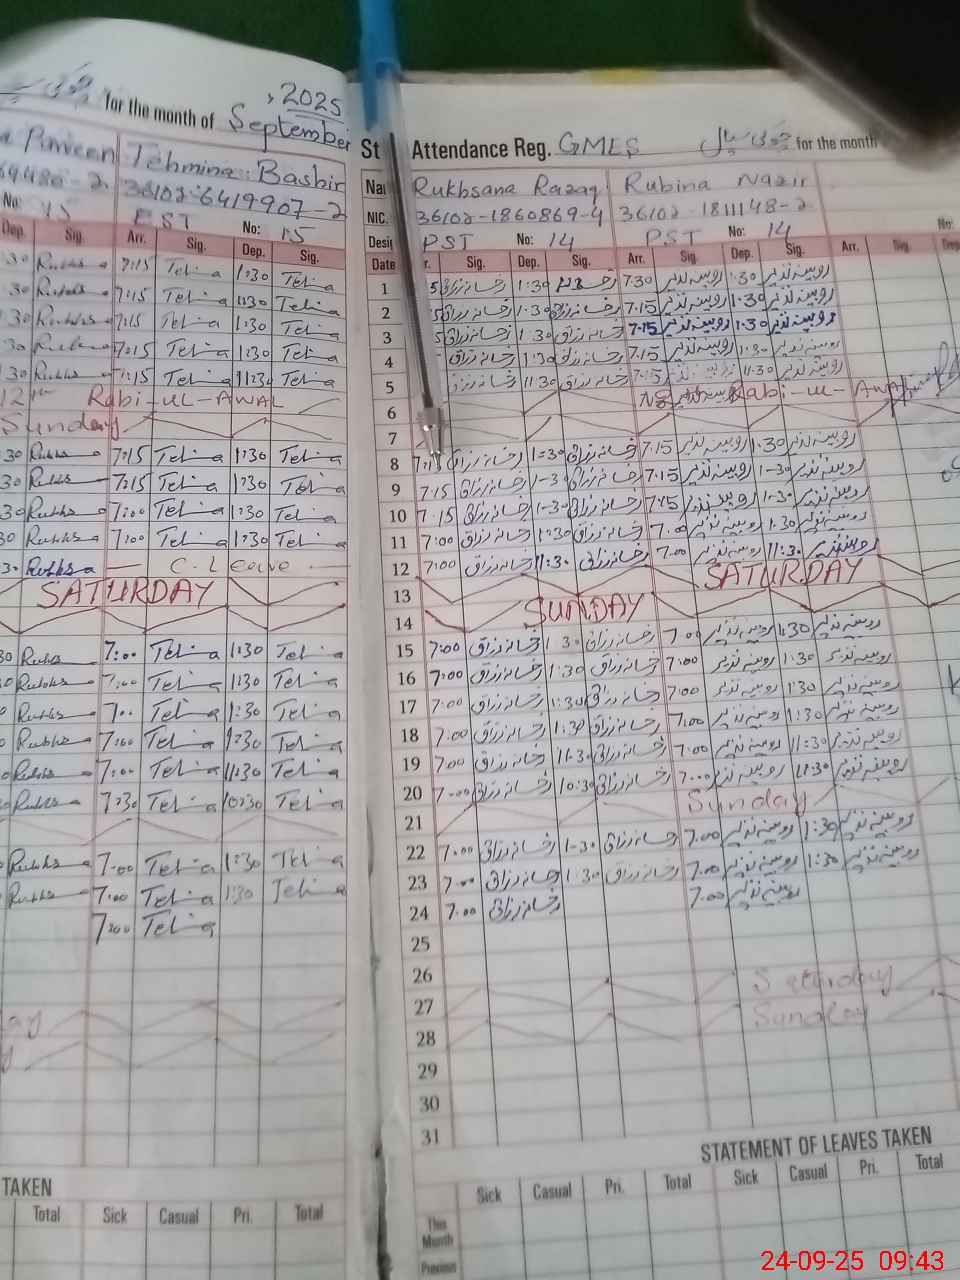 for the month of September, 2025
Parveen Tehmina Bashir
36102-6419907-2
PST No: 15
Dep. Sig. Arr. Sig. Dep. Sig.
30 Rukhs 7:15 Tehmina 1:30 Tehmina
30 Rukhs 7:15 Tehmina 1:30 Tehmina
30 Rukhs 7:15 Tehmina 1:30 Tehmina
30 7:15 Tehmina 1:30 Tehmina
30 Rukhs 7:15 Tehmina 11:30 Tehmina
12 Rabi-UL-AWAL
Sunday
30 Rukhs 7:15 Tehmina 1:30 Tehmina
30 Rukhs 7:15 Tehmina 1:30 Tehmina
30 Rukhs 7:00 Tehmina 1:30 Tehmina
30 Rukhs 7:00 Tehmina 1:30 Tehmina
30 Rukhsa C.Leave
SATURDAY
30 Rukhs 7:00 Tehmina 1:30 Tehmina
Rukhs 7:00 Tehmina 1:30 Tehmina
Rukhs 7:00 Tehmina 1:30 Tehmina
Rukhs 7:00 Tehmina 1:30 Tehmina
Rukhs 7:00 Tehmina 11:30 Tehmina
Rukhs 7:30 Tehmina 10:30 Tehmina
Rukhs 7:00 Tehmina 1:30 Tehmina
Rukhs 7:00 Tehmina 1:30 Tehmina
7:00 Tehmina
TAKEN
Total Sick Casual Pri. Total
St Attendance Reg. GMES چوکی سیال for the month
Rukhsana Razaq Rubina Nazir
NIC. 36102-1860869-4 36102-1811148-2
PST No: 14 PST No: 14 No:
Date Sig. Dep. Sig. Arr. Sig. Dep. Sig. Arr. Sig. Dep.
1 رخسانہ رزاق 1:30 7:30 روبینہ نذیر 1:30 روبینہ نذیر
2 رخسانہ رزاق 1:30 رخسانہ رزاق 7:15 روبینہ نذیر 1:30 روبینہ نذیر
3 رخسانہ رزاق 1:30 رخسانہ رزاق 7:15 روبینہ نذیر 1:30 روبینہ نذیر
4 رخسانہ رزاق 1:30 رخسانہ رزاق 7:15 روبینہ نذیر 1:30 روبینہ نذیر
5 رخسانہ رزاق 11:30 رخسانہ رزاق 7:15 روبینہ نذیر 11:30 روبینہ نذیر
6 Rabi-ul-Awal
7
8 7:15 رخسانہ رزاق 1:30 رخسانہ رزاق 7:15 روبینہ نذیر 1:30 روبینہ نذیر
9 7:15 رخسانہ رزاق 1-30 رخسانہ رزاق 7:15 روبینہ نذیر 1-30 روبینہ نذیر
10 7:15 رخسانہ رزاق 1-30 رخسانہ رزاق 7:15 روبینہ نذیر 1-30 روبینہ نذیر
11 7:00 رخسانہ رزاق 1:30 رخسانہ رزاق 7:00 روبینہ نذیر 1:30 روبینہ نذیر
12 7:00 رخسانہ رزاق 11:30 رخسانہ رزاق 7:00 روبینہ نذیر 11:30 روبینہ نذیر
13 SATURDAY
14 SUNDAY
15 7:00 رخسانہ رزاق 1 30 رخسانہ رزاق 7:00 روبینہ نذیر 1:30 روبینہ نذیر
16 7:00 رخسانہ رزاق 1:30 رخسانہ رزاق 7:00 روبینہ نذیر 1:30 روبینہ نذیر
17 7:00 رخسانہ رزاق 1:30 رخسانہ رزاق 7:00 روبینہ نذیر 1:30 روبینہ نذیر
18 7:00 رخسانہ رزاق 1:30 رخسانہ رزاق 7:00 روبینہ نذیر 1:30 روبینہ نذیر
19 7:00 رخسانہ رزاق 11:30 رخسانہ رزاق 7:00 روبینہ نذیر 11:30 روبینہ نذیر
20 7:00 رخسانہ رزاق 10:30 رخسانہ رزاق 7:00 روبینہ نذیر 11:30 روبینہ نذیر
21 Sunday
22 7:00 رخسانہ رزاق 1-30 رخسانہ رزاق 7:00 روبینہ نذیر 1:30 روبینہ نذیر
23 7:00 رخسانہ رزاق 1:30 رخسانہ رزاق 7:00 روبینہ نذیر 1:30 روبینہ نذیر
24 7:00 رخسانہ رزاق 7:00 روبینہ نذیر
25
26
27 Saturday
28 Sunday
29
30
31
STATEMENT OF LEAVES TAKEN
Sick Casual Pri. Total Sick Casual Pri. Total
This Month
Previous
24-09-25 09:43